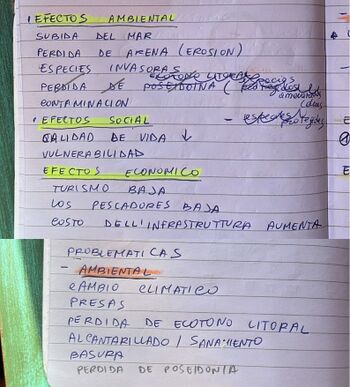 EFECTOS AMBIENTAL
SUBIDA DEL MAR
PERDIDA DE ARENA (EROSION)
ESPECIES INVASORAS
ECOTONO LITORAL
PERDIDA DE POSEIDONIA (
CONTAMINACION
EFECTOS SOCIAL -
CALIDAD DE VIDA ↓
VULNERABILIDAD
EFECTOS ECONOMICO
TURISMO BAJA
LOS PESCADORES BAJA
COSTO DELL'INFRASTRUTTURA AUMENTA
PROBLEMATICAS
- AMBIENTAL
CAMBIO CLIMATICO
PRESAS
PÉRDIDA DE ECOTONO LITORAL
ALCANTARILLADO / SANAMIENTO
BASURA
PERDIDA DE POSEIDONIA